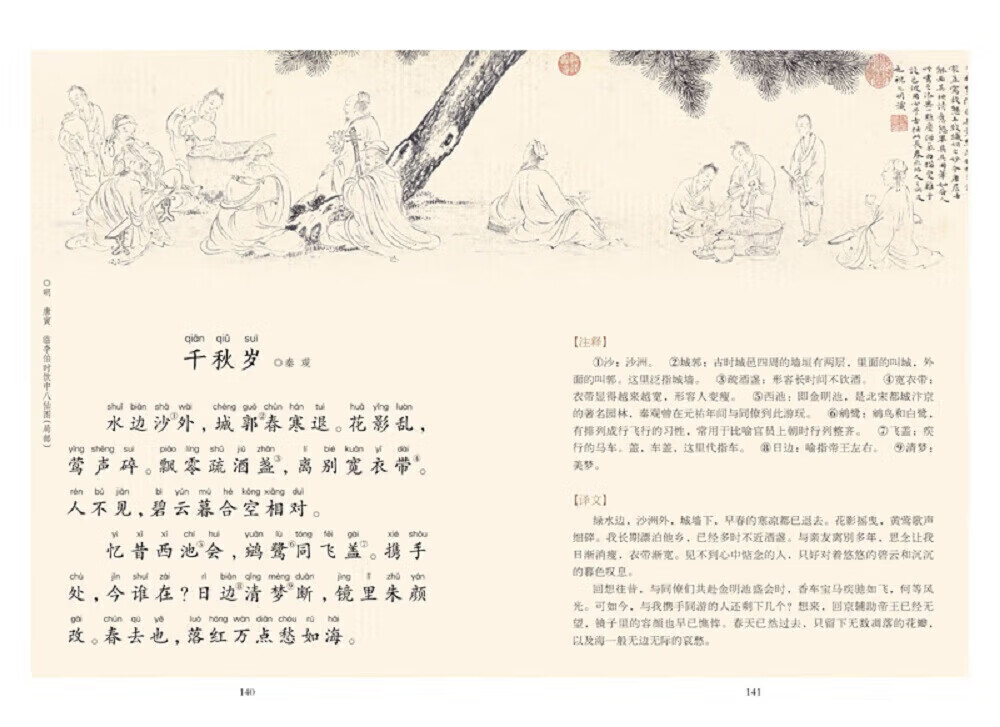 ◎明 唐寅 临李伯时饮中八仙图(局部)
qiān qiū suì
千秋岁 ◎秦 观
shuǐ biān shā wài chéng guō chūn hán tuì huā yǐng luàn
水边沙①外，城郭②春寒退。花影乱，
yīng shēng suì piāo líng shū jiǔ zhǎn lí bié kuān yī dài
莺声碎。飘零疏酒盏③，离别宽衣带④。
rén bú jiàn bì yún mù hé kōng xiāng duì
人不见，碧云暮合空相对。
yì xī xī chí huì yuān lù tóng fēi gài xié shǒu
忆昔西池⑤会，鹓鹭⑥同飞盖⑦。携手
chù jīn shuí zài rì biān qīng mèng duàn jìng lǐ zhū yán
处，今谁在？日边⑧清梦⑨断，镜里朱颜
gǎi chūn qù yě luò hóng wàn diǎn chóu rú hǎi
改。春去也，落红万点愁如海。
140
【注释】
①沙：沙洲。 ②城郭：古时城邑四周的墙垣有两层，里面的叫城，外
面的叫郭。这里泛指城墙。 ③疏酒盏：形容长时间不饮酒。 ④宽衣带：
衣带显得越来越宽，形容人变瘦。 ⑤西池：即金明池，是北宋都城汴京
的著名园林，秦观曾在元祐年间与同僚到此游玩。 ⑥鹓鹭：鹓鸟和白鹭，
有排列成行飞行的习性，常用于比喻官员上朝时行列整齐。 ⑦飞盖：疾
行的马车。盖，车盖，这里代指车。 ⑧日边：喻指帝王左右。 ⑨清梦：
美梦。
【译文】
绿水边，沙洲外，城墙下，早春的寒凉都已退去。花影摇曳，黄莺歌声
细碎。我长期漂泊他乡，已经多时不近酒盏。与亲友离别多年，思念让我
日渐消瘦，衣带渐宽。见不到心中惦念的人，只好对着悠悠的碧云和沉沉
的暮色叹息。
回想往昔，与同僚们共赴金明池盛会时，香车宝马疾驰如飞，何等风
光。可如今，与我携手同游的人还剩下几个？想来，回京辅助帝王已经无
望，镜子里的容颜也早已憔悴。春天已然过去，只留下无数凋落的花瓣，
以及海一般无边无际的哀愁。
141